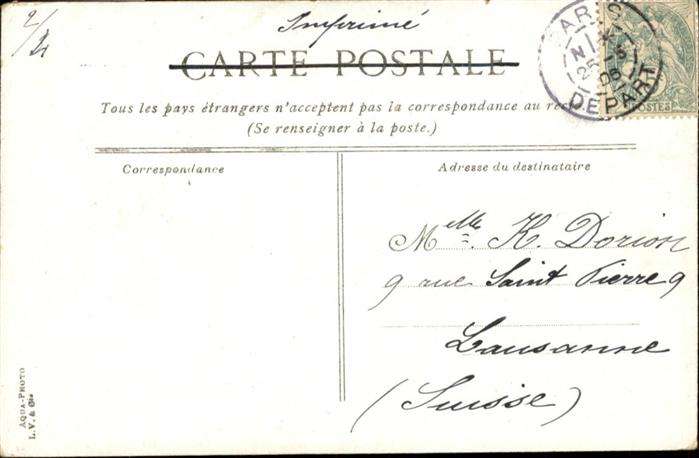 2/
Imprimé
CARTE POSTALE
Tous les pays étrangers n'acceptent pas la correspondance au recto
(Se renseigner à la poste.)
Correspondance
Adresse du destinataire
Melle. K. Dorion
9 rue Saint Pierre 9
Lausanne
(Suisse)
AQUA-PHOTO
L. V. & Cie
PARIS
25
05
DEPART
POSTES